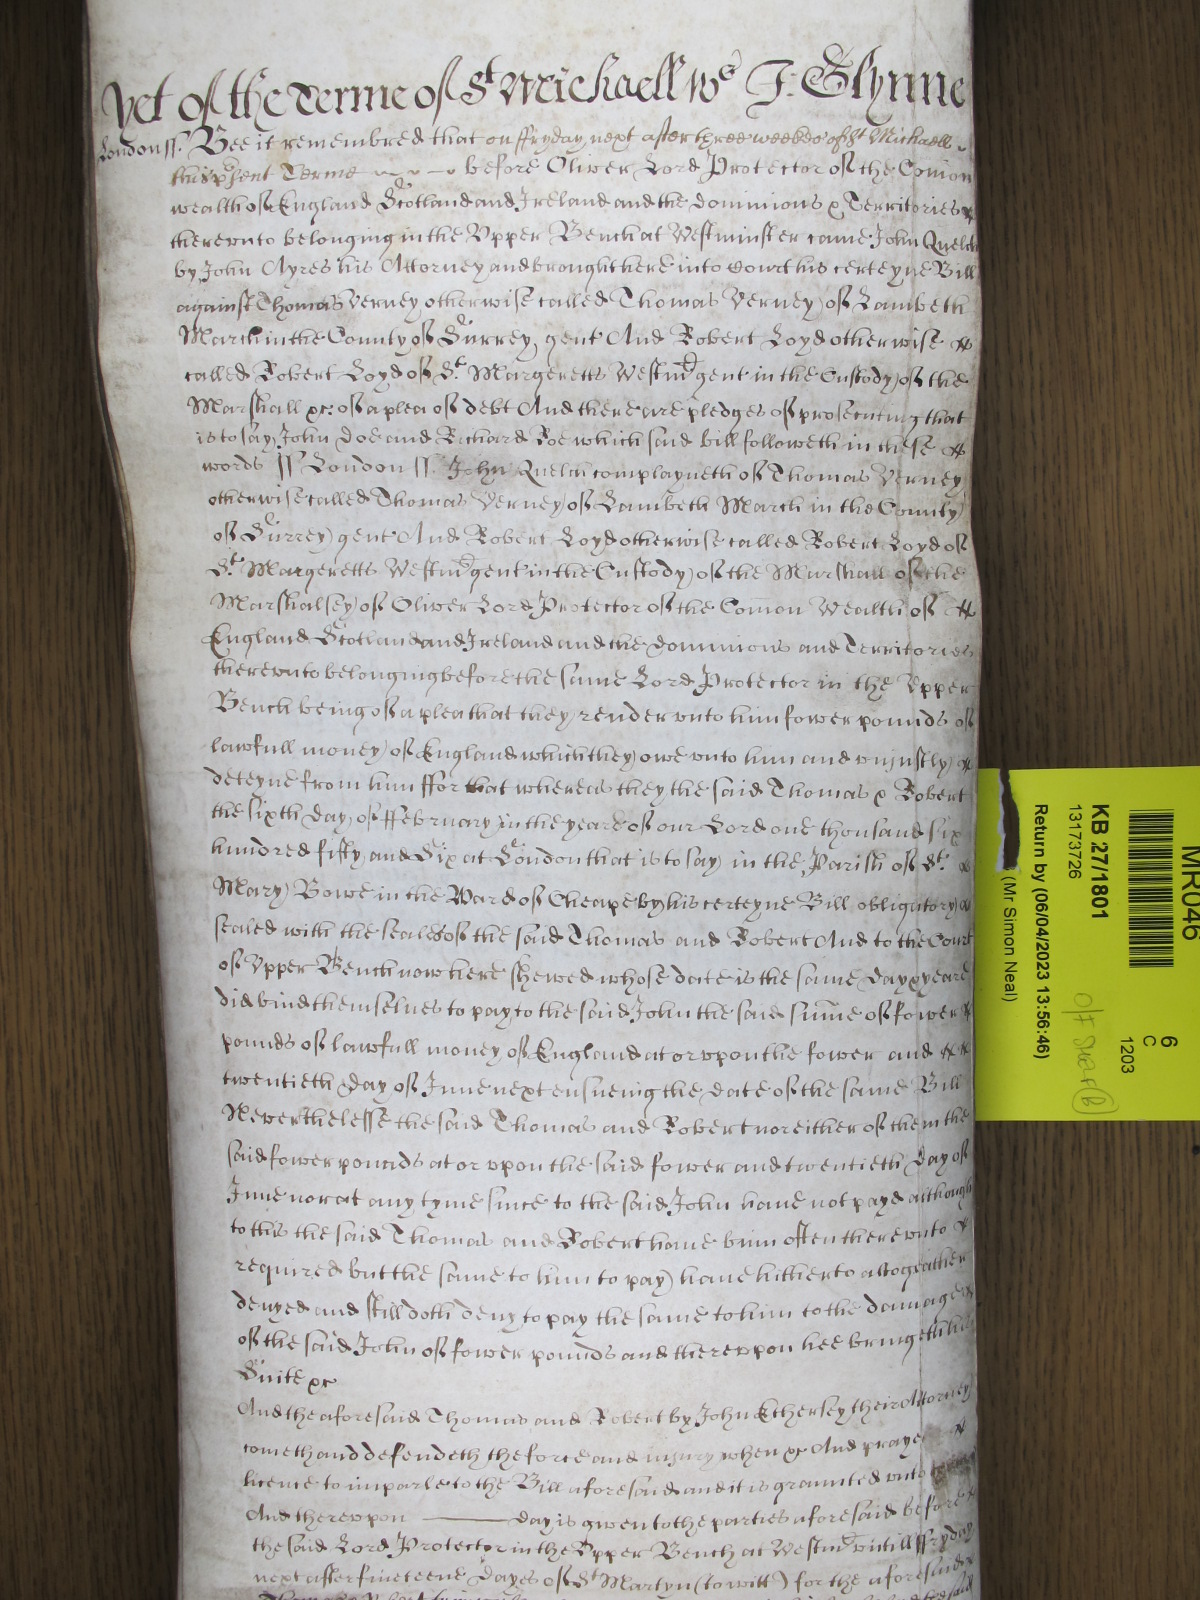 Yet of the Terme of St Michaell Ws J: Glynne
London ss. Bee it remembred that on ffryday next after three weekes of St Michaell
this psent Terme before Oliver Lord Protector of the Comon
wealth of England Scotland and Ireland and the dominions & Territories
therevnto belonging in the Vpper Bench at Westminster came John Quelch
by John Ayres his Attorney and brought here into Court his certeyne Bill
against Thomas Verney otherwise called Thomas Verney of Lambeth
March in the County of Surrey gent And Robert Loyd otherwise
called Robert Loyd of St. Margeretts Westmr gent in the Custody of the
Marshall &c: of a plea of debt And there are pledges of prosecuting that
is to say John Doe and Richard Roe which said bill followeth in these
words ss London ss. John Quelch complayneth of Thomas Verney
otherwise called Thomas Verney of Lambeth March in the County
of Surrey gent And Robert Loyd otherwise called Robert Loyd of
St. Margeretts Westmr gent in the Custody of the Marshall of the
Marshalsey of Oliver Lord Protector of the Comon Wealth of
England Scotland and Ireland and the dominions and Territories
therevnto belonging before the same Lord Protector in the Vpper
Bench being of a plea that they render vnto him fower pounds of
lawfull money of England which they owe vnto him and vniustly
deteyne from him ffor that whereas they the said Thomas & Robert
the sixth day of ffebruary in the yeare of our Lord one thousand six
hundred fifty and Six at London that is to say in the Parish of St.
Mary Bowe in the Ward of Cheape by his certeyne Bill obligatory
sealed with the seales of the said Thomas and Robert And to the Court
of Vpper Bench now here shewed whose date is the same day & yeare
did bind themselues to pay to the said John the said summe of fower
pounds of lawfull money of England at or vpon the fower and
twentieth day of June next ensueing the date of the same Bill
Neverthelesse the said Thomas and Robert nor either of them the
said fower pounds at or vpon the said fower and twentieth day of
June nor at any tyme since to the said John haue not payd although
to this the said Thomas and Robert haue binn often therevnto
required but the same to him to pay haue hitherto altogeather
denyed and still doth deny to pay the same to him to the damage
of the said John of fower pounds and therevpon hee bringeth his
Suite &c
And the aforesaid Thomas and Robert by John Ethersey their Attorney
cometh and defendeth the force and iniury when &c And praye
licence to imparle to the Bill aforesaid and it is graunted vnto
And therevpon day is given to the parties aforesaid before
the said Lord Protector in the Vpper Bench at Westmr vntill ffryday
next after fineteene dayes of St Martyn (to witt) for the aforesaid
MR046
6
C
1203
KB 27/1801
13173726
Return by (06/04/2023 13:56:46)
(Mr Simon Neal)